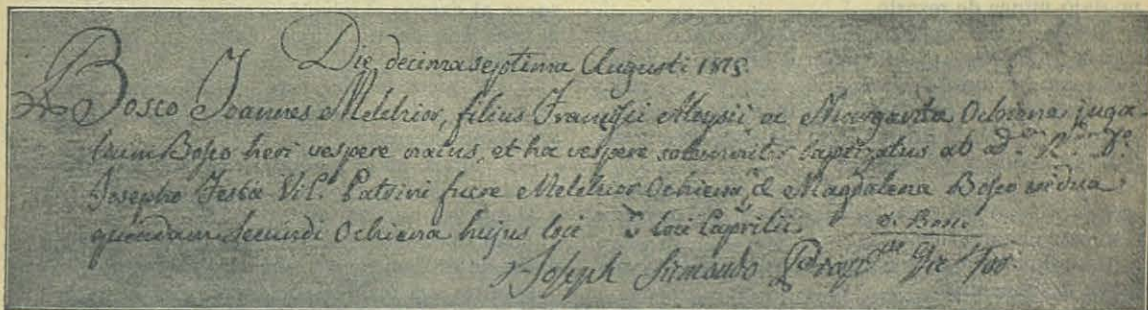 Die decima septima Augusti 1815.
Bosco Joannes Melchior, filius Francisci Aloysii ac Margarita Ochiena juga
lium Bosco heri vespere natus, et hac vespere solemniter baptizatus ab
Josepho Festa Vic. Patrini fuere Melchior Ochiena & Magdalena Bosco vidua
quondam Secundi Ochiena hujus loci loci Caprilii. D. Bosco
Joseph Sismondo